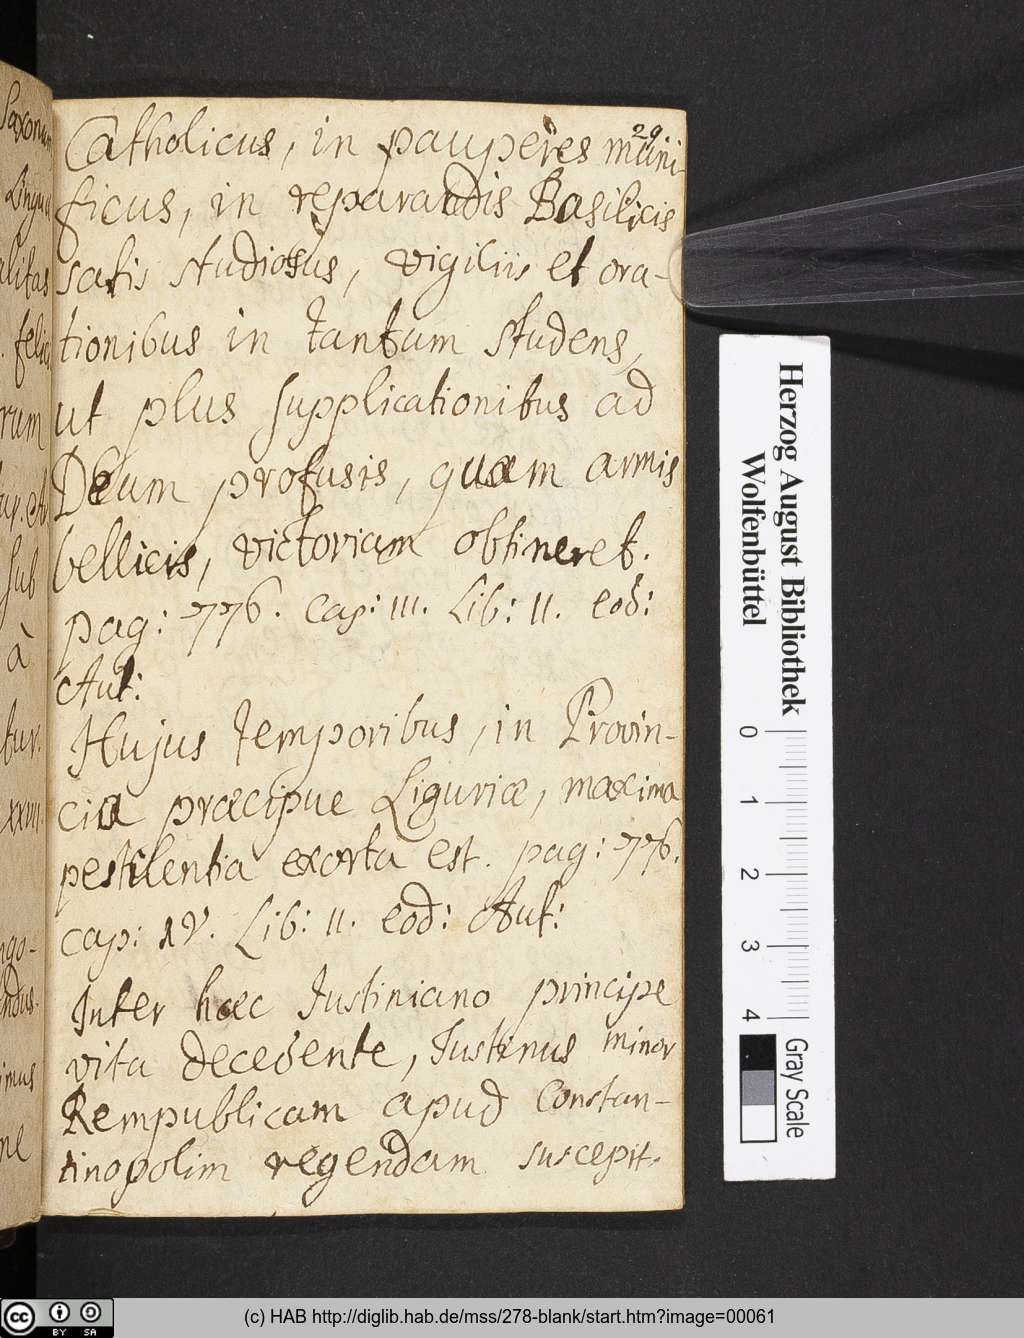 29.
Catholicus, in pauperes muni
ficus, in reparandis Basilicis
satis studiosus, vigiliis et ora-
tionibus in tantum studens,
ut plus supplicationibus ad
Deum profusis, quam armis
bellicis, victoriam obtineret.
pag: 776. cap: III. Lib: II. eod:
Aut:
Hujus temporibus, in Provin-
cia præcipue Liguriæ, maxima
pestilentia exorta est. pag: 776.
cap: IV. Lib: II. eod: Aut:
Inter hæc Iustiniano principe
vita decedente, Iustinus minor
Rempublicam apud Constan-
tinopolim regendam suscepit.
Saxonum
Lingua
alitas
felic
rum
sub
à
tur.
xxviii.
ngo-
endus.
imus
ne
Herzog August Bibliothek
Wolfenbüttel
0 1 2 3 4
Gray Scale
cc BY SA
(c) HAB http://diglib.hab.de/mss/278-blank/start.htm?image=00061